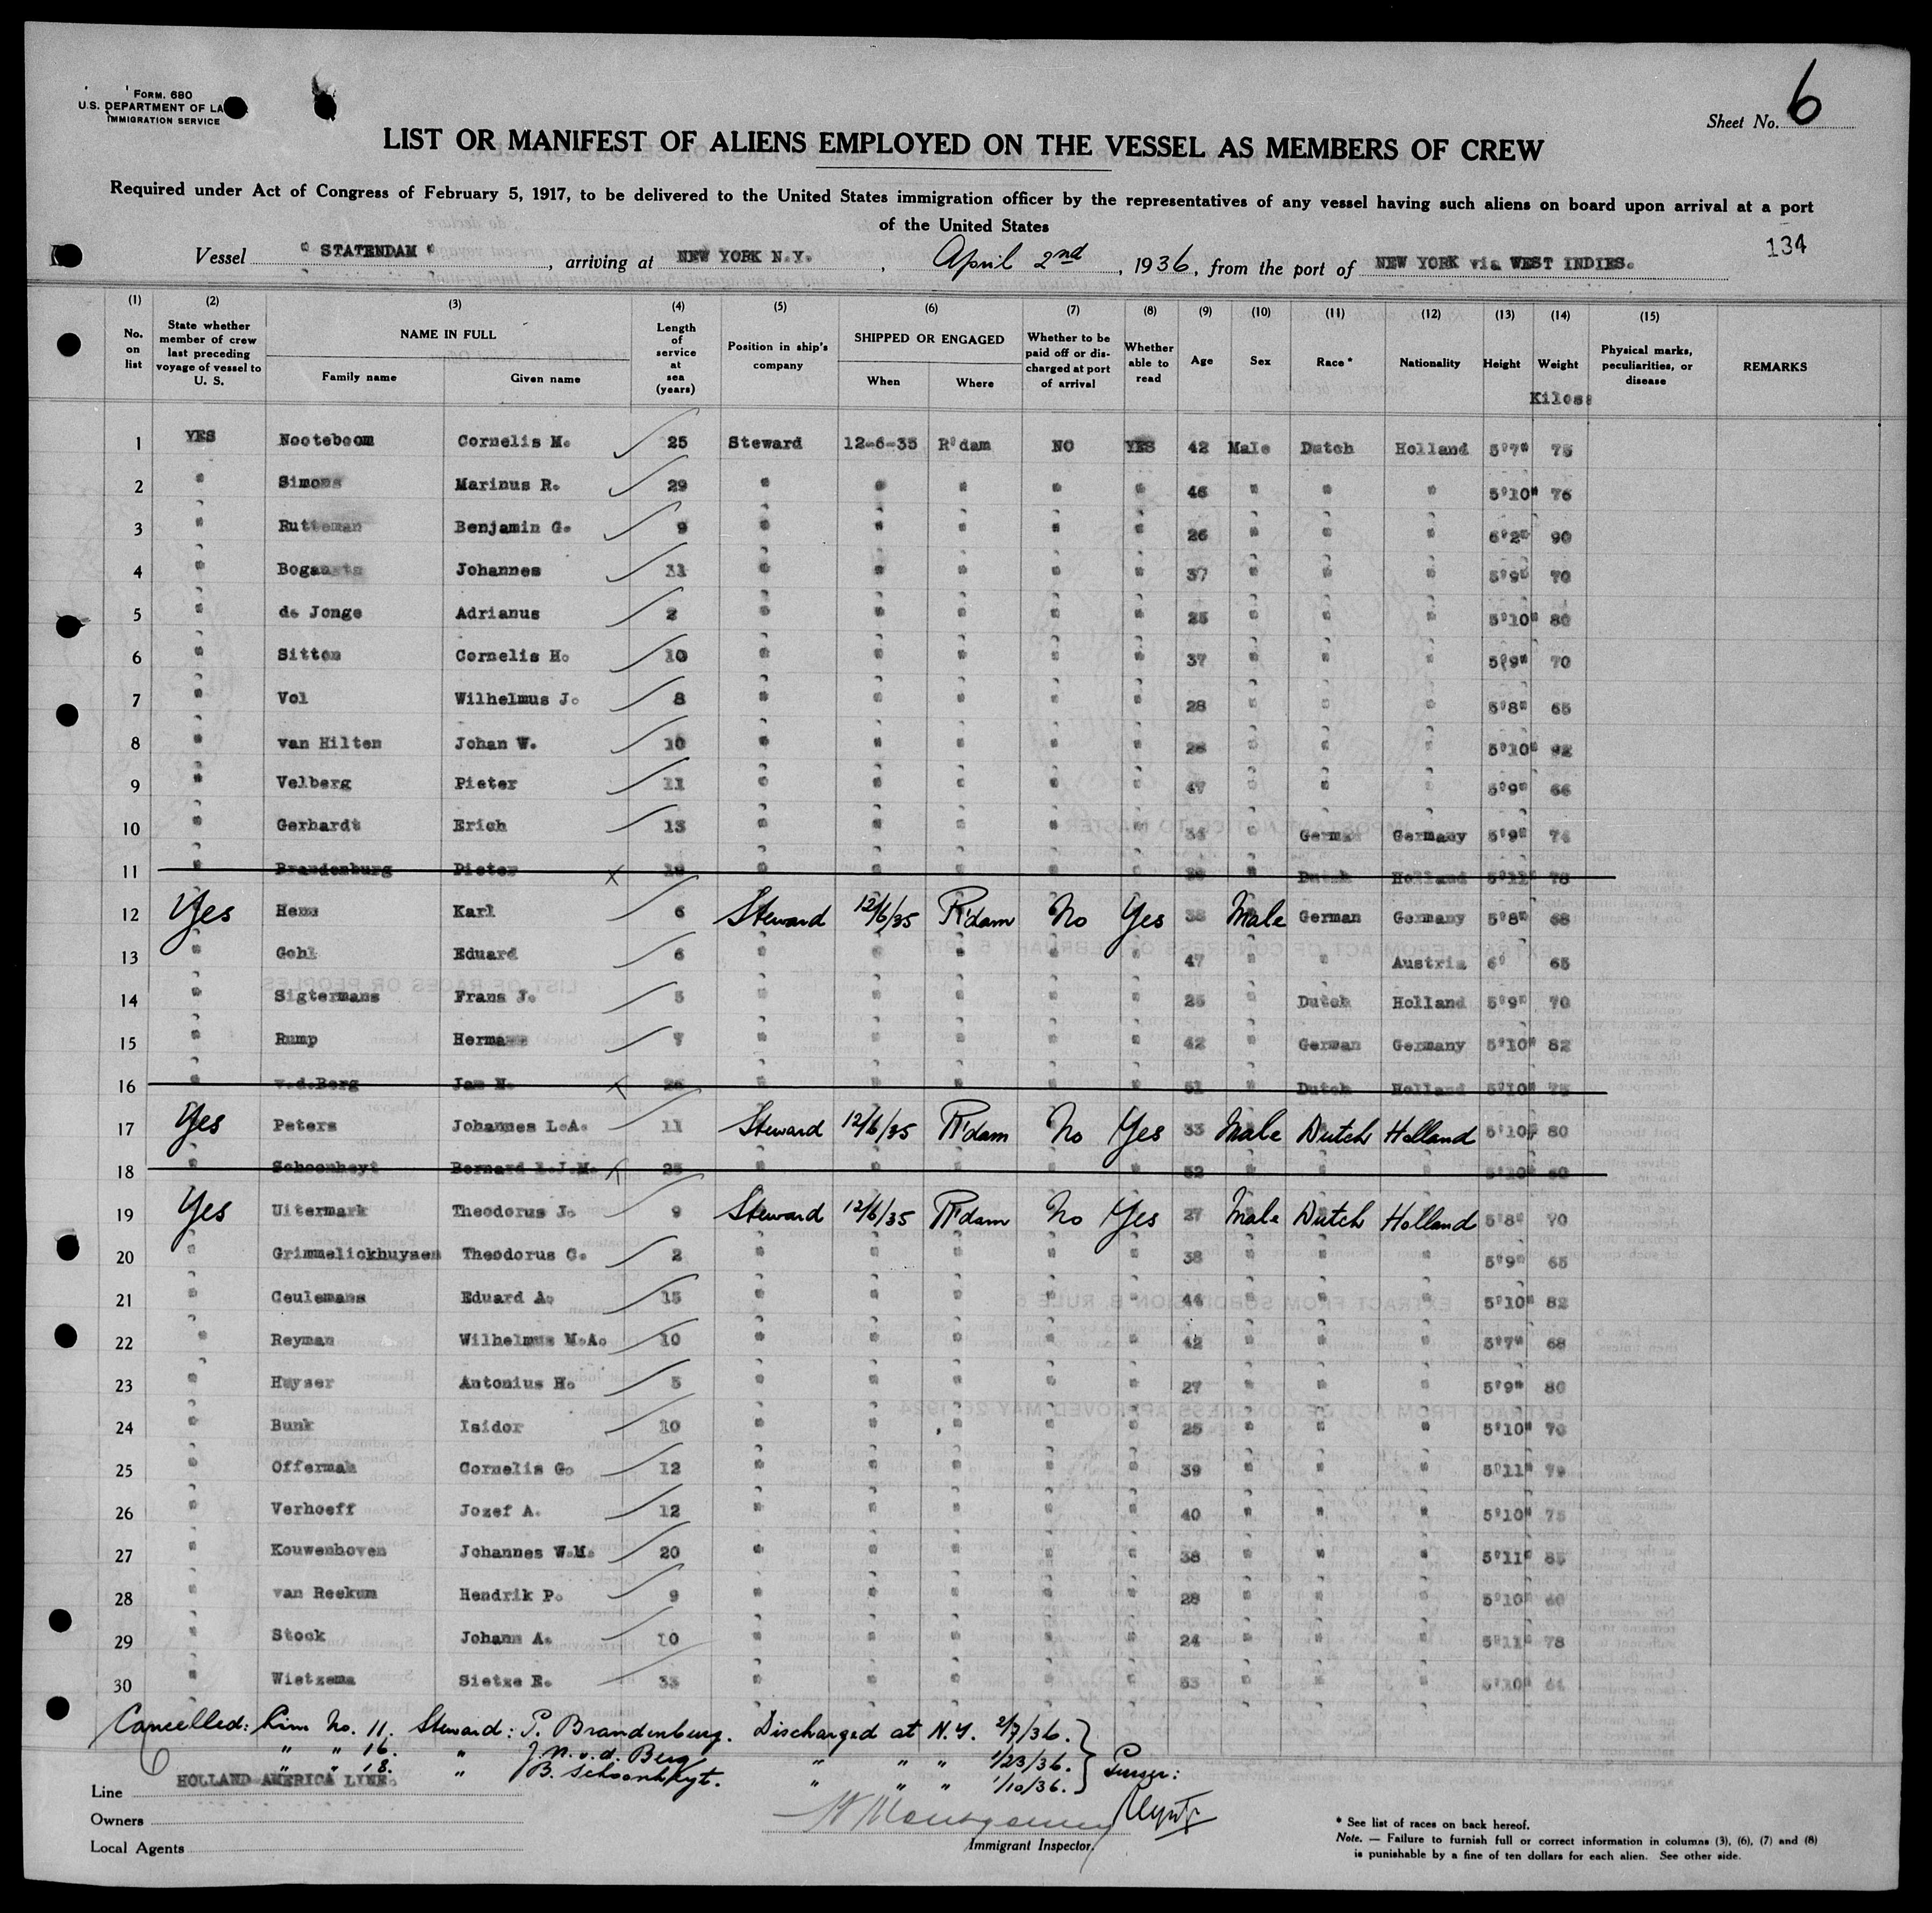 FORM. 680
U.S. DEPARTMENT OF LA
IMMIGRATION SERVICE
Sheet No. 6
LIST OR MANIFEST OF ALIENS EMPLOYED ON THE VESSEL AS MEMBERS OF CREW
Required under Act of Congress of February 5, 1917, to be delivered to the United States immigration officer by the representatives of any vessel having such aliens on board upon arrival at a port
of the United States
134
Vessel " STATENDAM " , arriving at NEW YORK N.Y. , April 2nd , 1936, from the port of NEW YORK via WEST INDIES.
(1) (2) (3) (4) (5) (6) (7) (8) (9) (10) (11) (12) (13) (14) (15)
No. on list State whether member of crew last preceding voyage of vessel to U. S. NAME IN FULL Family name Given name Length of service at sea (years) Position in ship's company SHIPPED OR ENGAGED When Where Whether to be paid off or discharged at port of arrival Whether able to read Age Sex Race * Nationality Height Weight Physical marks, peculiarities, or disease REMARKS
Kilos
1 YES Nooteboom Cornelis M. 25 Steward 12-6-35 R'dam NO YES 42 Male Dutch Holland 5'7" 75
2 " Simons Marinus R. 29 " " " " " 46 " " " 5'10" 76
3 " Rutteman Benjamin G. 9 " " " " " 26 " " " 6'2" 90
4 " Johannes " " " " " 37 " " " 5'9" 70
5 " de Jonge Adrianus 2 " " " " " 25 " " " 5'10" 80
6 " Sitton Cornelis H. 10 " " " " " 37 " " " 5'9" 70
7 " Vol Wilhelmus J. 8 " " " " " 28 " " " 5'8" 65
8 " van Hilten Johan W. 10 " " " " " 28 " " " 5'10" 92
9 " Velberg Pieter 11 " " " " " 47 " " " 5'9" 66
10 " Gerhardt Erich 13 " " " " " " German Germany 5'9"
11 " Brandenburg Pieter " " " " " " Dutch Holland 5'11" 78
12 Yes Karl 6 Steward 12/6/35 R'dam No Yes 38 Male German Germany 5'8" 68
13 " Gohl Eduard 6 " " " " " 47 " " Austria 6' 65
14 " Sigtermans Frans J. 5 " " " " " 25 " Dutch Holland 5'9" 70
15 " Rump Hermann 7 " " " " " 42 " German Germany 5'10" 82
16 " v.d.Berg Jan N. " " " " " 51 " Dutch Holland 5'10" 75
17 Yes Peters Johannes L.A. 11 Steward 12/6/35 R'dam No Yes 33 Male Dutch Holland 5'10" 80
18 " Schoonheyt Bernard 25 " " " " " 52 " " " 5'10" 60
19 Yes Uitermark Theodorus J. 9 Steward 12/6/35 R'dam No Yes 27 Male Dutch Holland 5'8" 70
20 " Grimmelickhuysen Theodorus G. 2 " " " " " 38 " " " 5'9" 65
21 " Ceulemans Eduard A. 15 " " " " " 44 " " " 5'10" 82
22 " Reyman Wilhelmus M.A. 10 " " " " " 42 " " " 5'7" 68
23 " Huyser Antonius H. 5 " " " " " 27 " " " 5'9" 80
24 " Bunk Isidor 10 " " " " " 25 " " " 5'10" 70
25 " Offerman Cornelis G. 12 " " " " " 39 " " " 5'11" 79
26 " Verhoeff Jozef A. 12 " " " " " 40 " " " 5'10" 75
27 " Kouwenhoven Johannes W.M. 20 " " " " " 38 " " " 5'11" 85
28 " van Reekum Hendrik P. 9 " " " " " 28 " " " 5'10"
29 " Stock Johann A. 10 " " " " " 24 " " " 5'11" 78
30 " Wietzema Sietze E. 33 " " " " " 53 " " " 5'10"
Cancelled: Line No. 11. Steward: P. Brandenburg. Discharged at N.Y. 2/7/36.
" " 16. " J.N. v.d. Berg " " " 1/23/36.
" " 18. " B. Schoonheyt. " " " 1/10/36. Purser:
Line HOLLAND AMERICA LINE.
Owners
Local Agents
Immigrant Inspector.
* See list of races on back hereof.
Note. — Failure to furnish full or correct information in columns (3), (6), (7) and (8)
is punishable by a fine of ten dollars for each alien. See other side.